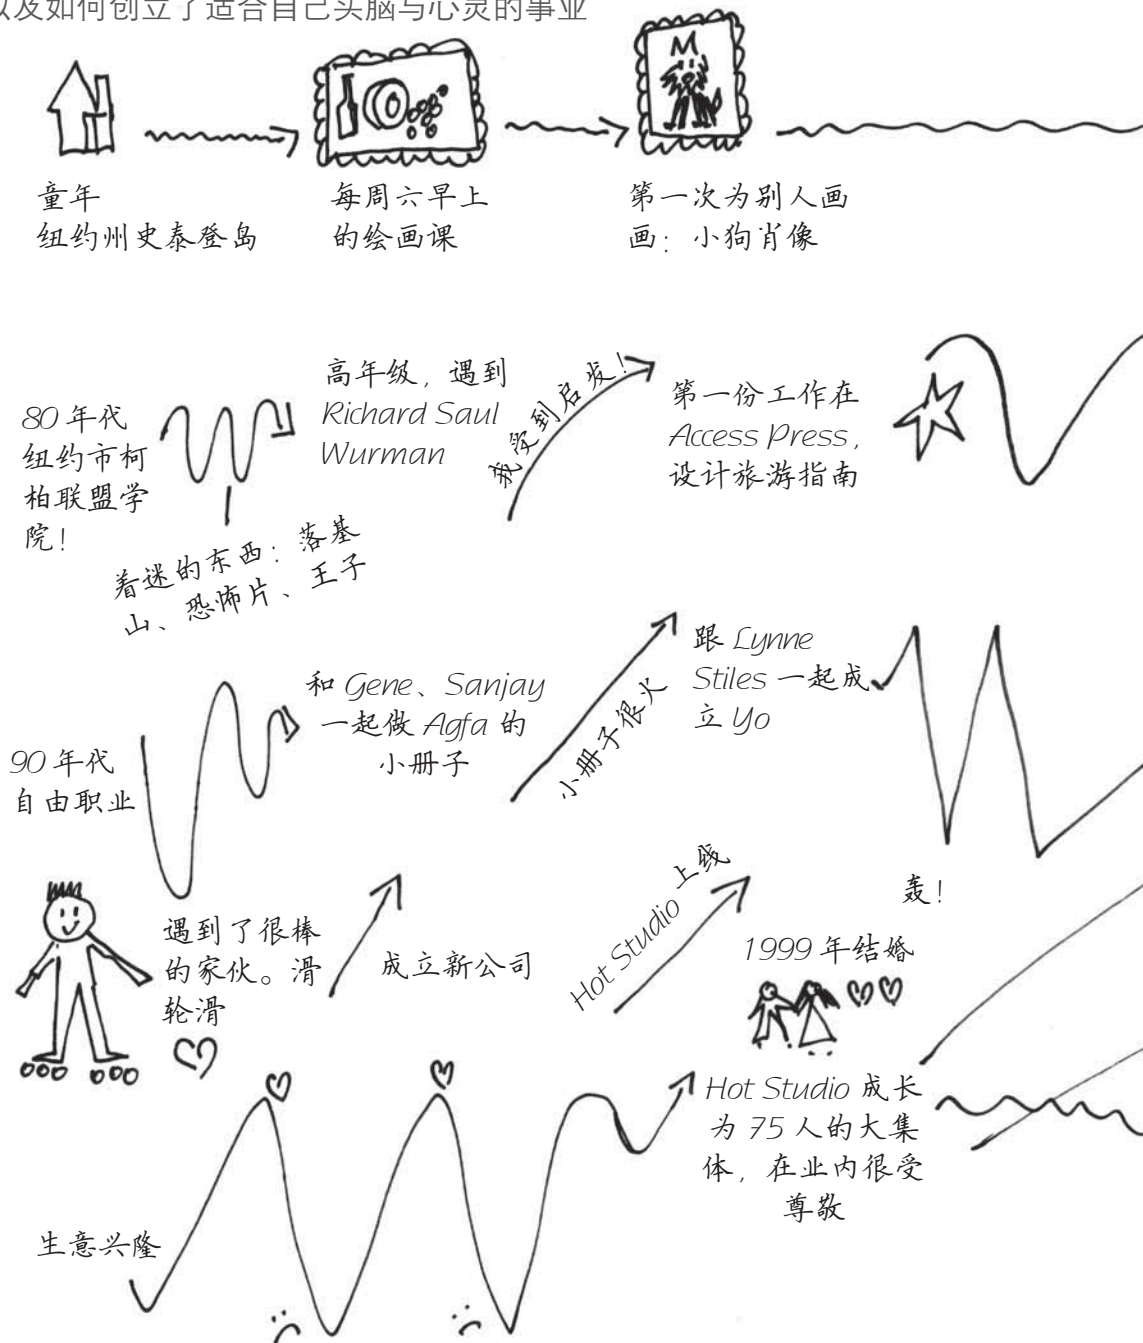 以及如何创立了适合自己头脑与心灵的事业
童年
纽约州史泰登岛
每周六早上
的绘画课
第一次为别人画
画：小狗肖像
80 年代
纽约市柯
柏联盟学
院！
着迷的东西：落基
山、恐怖片、王子
高年级，遇到
Richard Saul
Wurman
我受到启发！
第一份工作在
Access Press，
设计旅游指南
90 年代
自由职业
和 Gene、Sanjay
一起做 Agfa 的
小册子
小册子很火
跟 Lynne
Stiles 一起成
立 Yo
轰！
遇到了很棒
的家伙。滑
轮滑
成立新公司
Hot Studio 上线
1999 年结婚
生意兴隆
Hot Studio 成长
为 75 人的大集
体，在业内很受
尊敬